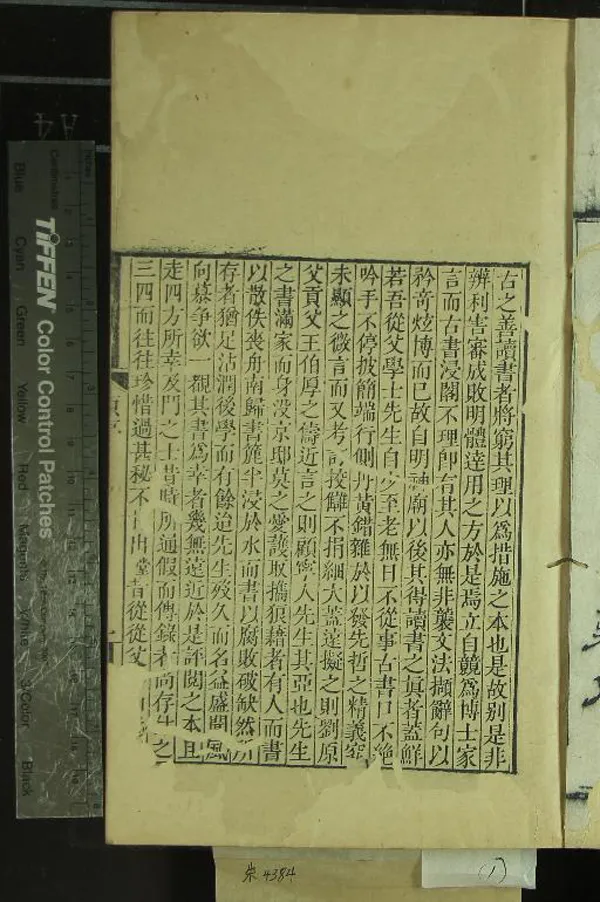 古之善讀書者將窮其理以爲措施之本也是故别是非
辨利害審成敗明體達用之方於是焉立自競爲博士家
言而古書浸閣不理卽有其人亦無非襲文法擷辭句以
矜奇炫博而已故自明神廟以後其得讀書之眞者蓋鮮
若吾從父學士先生自少至老無日不從事古書口不絶
吟手不停披簡端行側丹黃錯雜於以發先哲之精義究
未顯之微言而又考訂挍讎不捐細大蓋遠擬之則劉原
父貢父王伯厚之儔近言之則顧寧人先生其亞也先生
之書滿家而身没京邸莫之愛護取攜狼藉者有人而書
以散佚喪舟南歸書簏半浸於水而書以腐敗破缺然所
存者猶足沾漑後學而有餘迨先生殁久而名益盛聞風
向慕爭欲一覩其書爲幸者幾無遠近於是評閱之本且
走四方所幸及門之士昔時所通假而傳錄者尚存什之
三四而往往珍惜過甚秘不出堂昔從從父
TIFFEN Color Control Patches
Centimetres
Inches
Blue
Cyan
Green
Yellow
Red
Magenta
White
3/Color
Black
A4
崇 4384
(1)